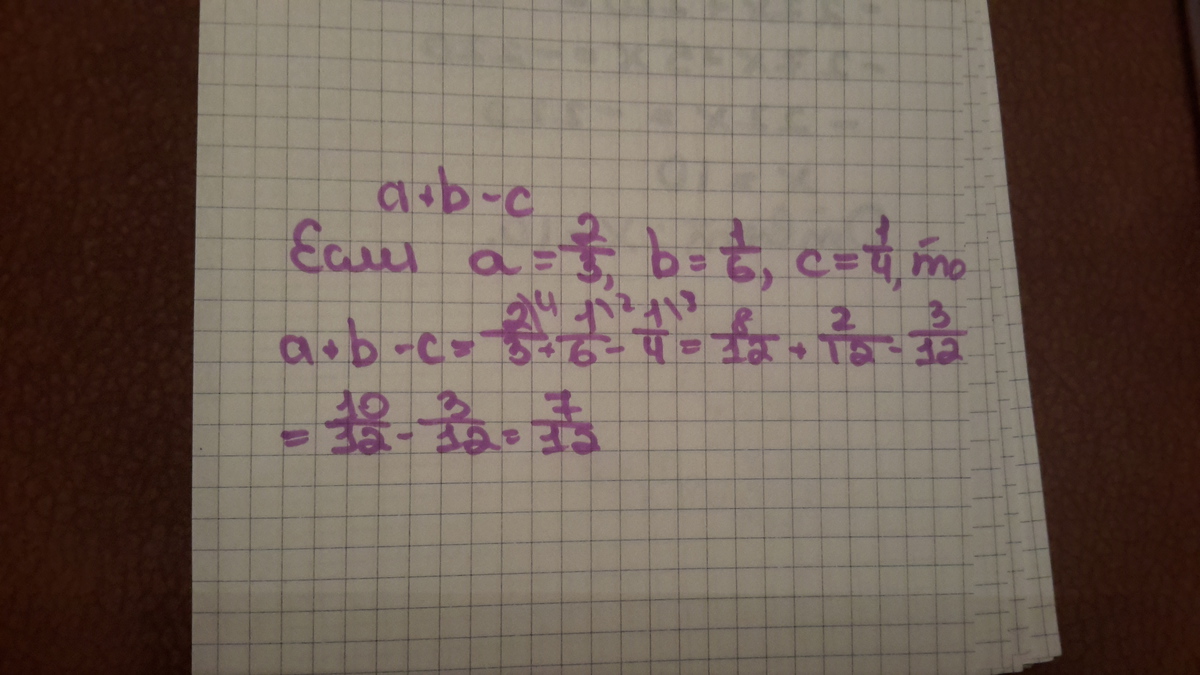 a+b-c
Если a = 2/3, b = 1/6, c = 1/4, то
a+b-c = 2\4/3 + 1\2/6 - 1\3/4 = 8/12 + 2/12 - 3/12
= 10/12 - 3/12 = 7/12